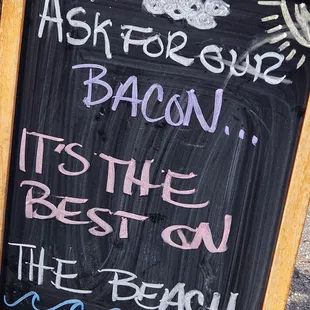 ASK FOR OUR
BACON...
IT'S THE
BEST ON
THE BEACH